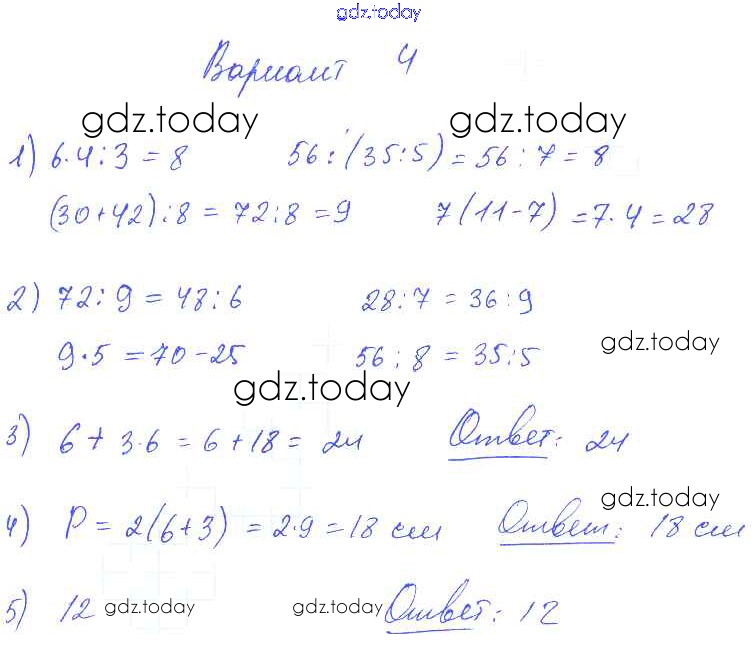 gdz.today
Вариант 4
gdz.today gdz.today
1) 6·4:3 = 8 56:(35:5) = 56:7 = 8
(30+42):8 = 72:8 = 9 7(11-7) = 7·4 = 28
2) 72:9 = 48:6 28:7 = 36:9
9·5 = 70-25 56:8 = 35:5 gdz.today
gdz.today
3) 6 + 3·6 = 6 + 18 = 24 Ответ: 24
gdz.today
4) P = 2(6+3) = 2·9 = 18 см Ответ: 18 см
5) 12 gdz.today gdz.today Ответ: 12